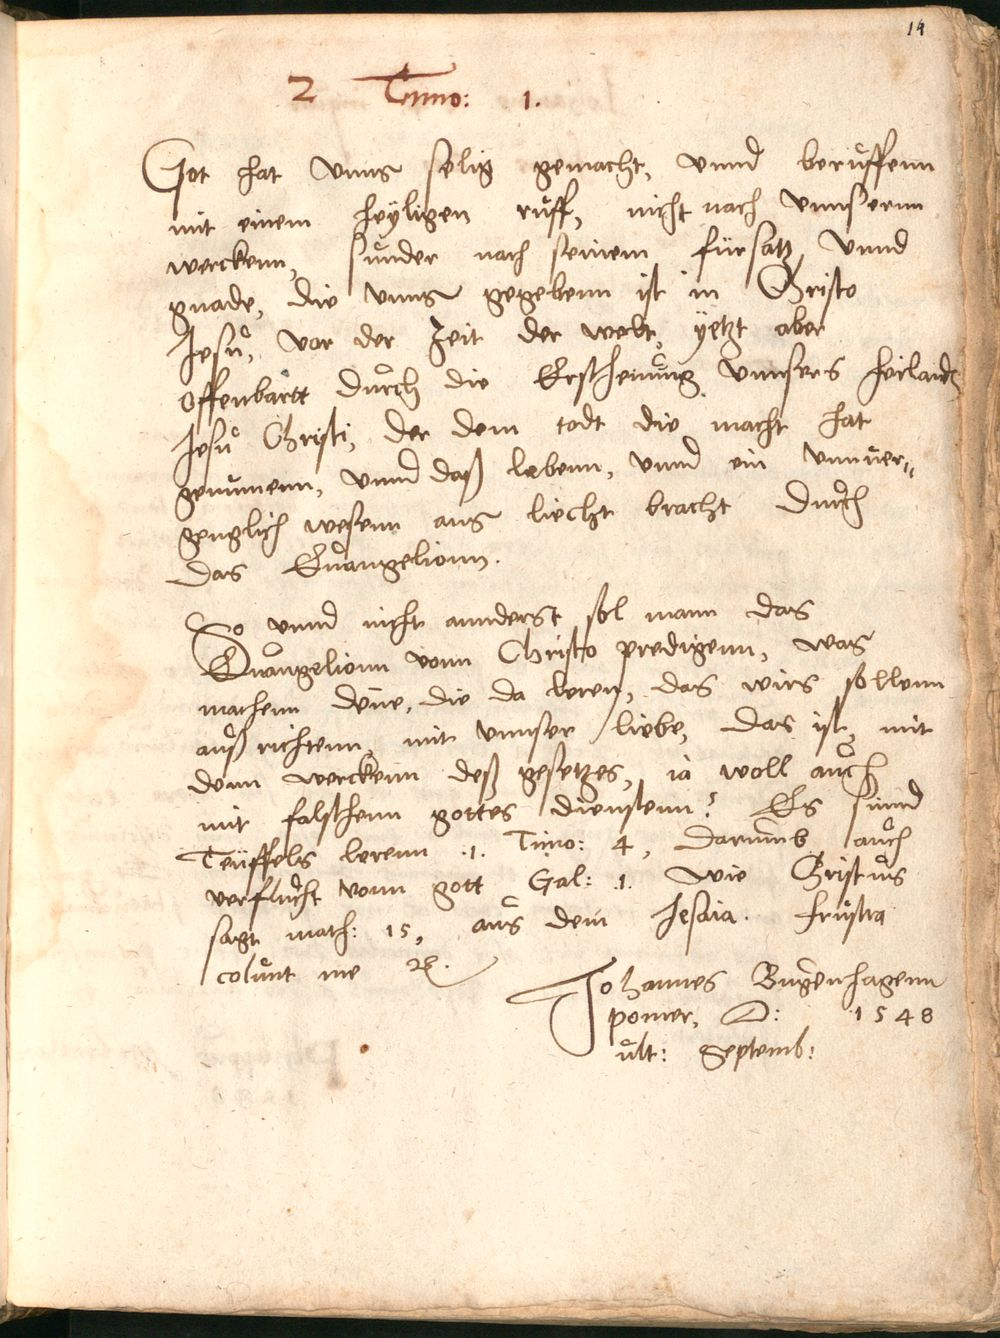 14
2 Timo: 1.
Got hat vnns selig gemacht, vnnd beruffenn
mit einem heyligen ruff, nicht nach vnnserm
werckenn, sunder nach seinem fürsatz vnnd
gnade, die vnns gegebenn ist in Christo
Jesu, vor der Zeit der welt, yetzt aber
offenbartt durch die Erscheinung vnnsers heilands
Jesu Christi, der dem todt die macht hat
genumenn, vnnd daß lebenn, vnnd ein vnnuer„
genglich wesenn ans liecht bracht durch
das Euangelionn.
So vnnd nicht annderst sol mann das
Euangelionn vonn Christo predigenn, was
machenn dene, die da leren, das wirs sollenn
auß richtenn, mit vnnser liebe, das ist, mit
denn werckenn deß gesetzes, ia woll auch
mit falschenn gottes dienstenn? Es sinnd
Teüffels lerenn .1. Timo: 4, darumb auch
verflucht vonn gott Gal: .1. wie Christus
sagt math: 15, aus dem Jesaia. frustra
colunt me ꝛc.
Johannes Bugenhagenn
pomer, D: 1548
ult: Septemb: